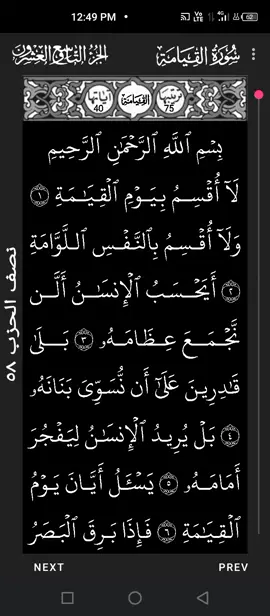 12:49 PM
سُورَةُ القِيَامَةِ
الجُزءُ التَّاسِعُ وَالعِشْرُونَ
ترتيبها 75
القيامة
آياتها 40
بِسْمِ ٱللَّهِ ٱلرَّحْمَٰنِ ٱلرَّحِيمِ
لَآ أُقْسِمُ بِيَوْمِ ٱلْقِيَٰمَةِ ١
وَلَآ أُقْسِمُ بِٱلنَّفْسِ ٱللَّوَّامَةِ
٢ أَيَحْسَبُ ٱلْإِنسَٰنُ أَلَّن
نَّجْمَعَ عِظَامَهُۥ ٣ بَلَىٰ
قَٰدِرِينَ عَلَىٰٓ أَن نُّسَوِّىَ بَنَانَهُۥ
٤ بَلْ يُرِيدُ ٱلْإِنسَٰنُ لِيَفْجُرَ
أَمَامَهُۥ ٥ يَسْـَٔلُ أَيَّانَ يَوْمُ
ٱلْقِيَٰمَةِ ٦ فَإِذَا بَرِقَ ٱلْبَصَرُ
نصف الحزب ٥٨
NEXT
PREV